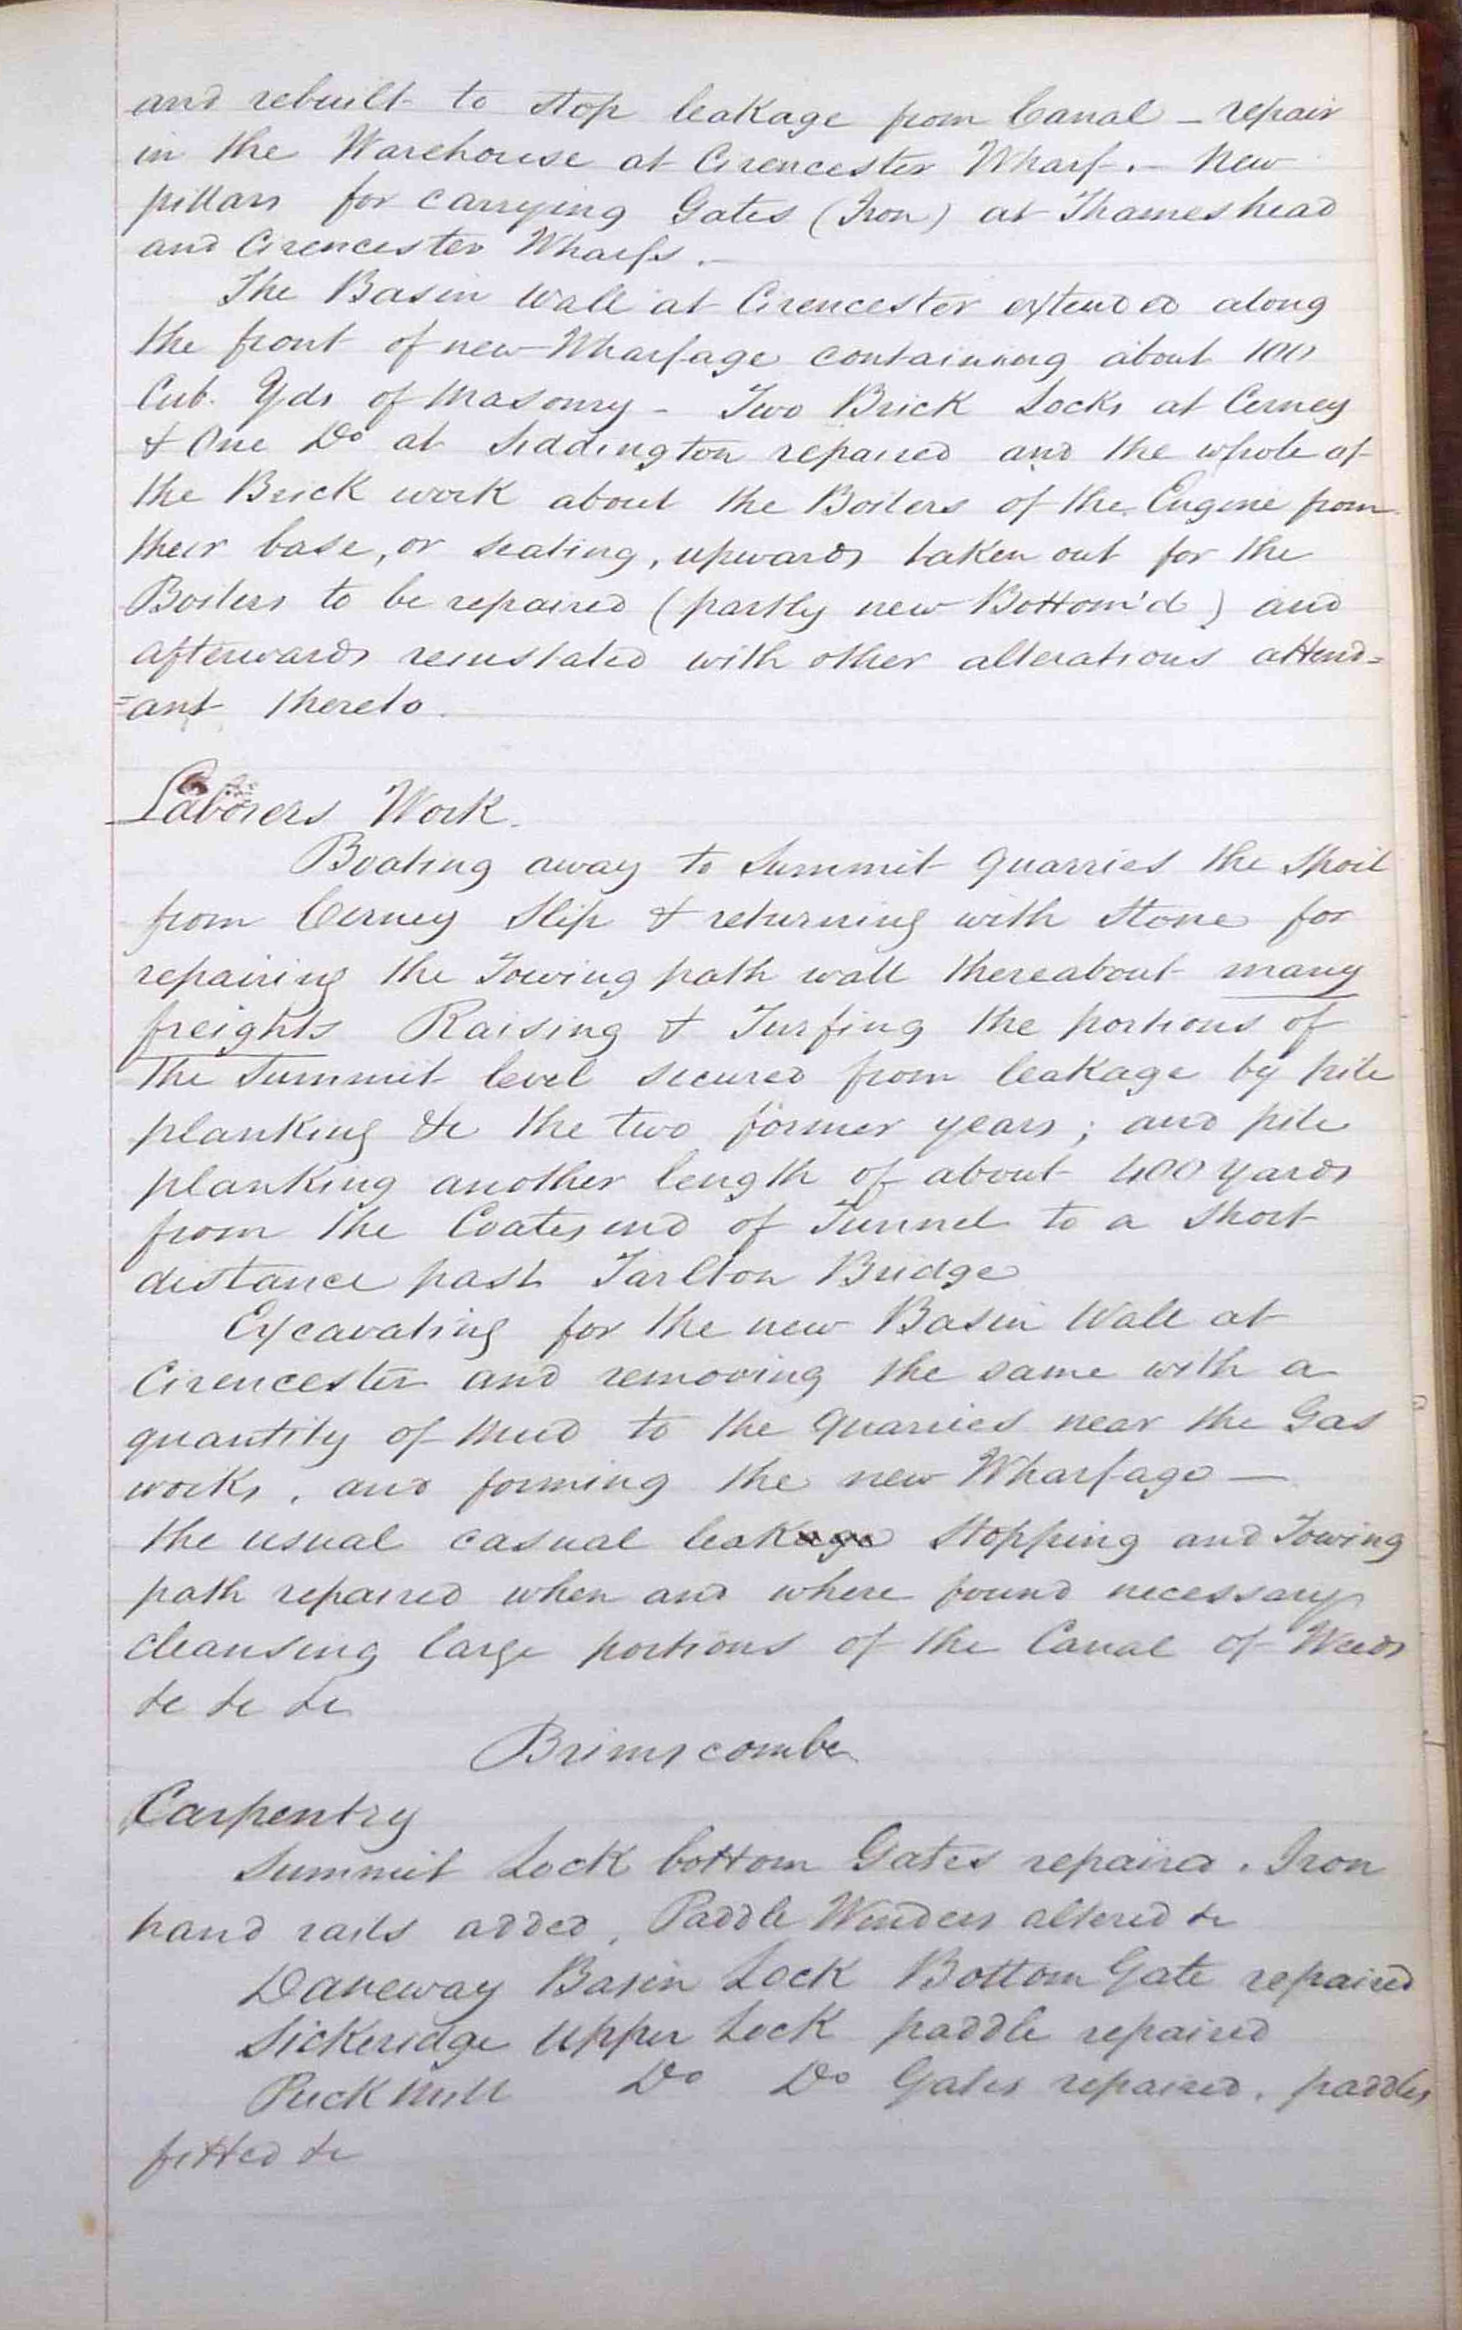 and rebuilt to stop leakage from Canal – repair
in the Warehouse at Cirencester Wharf. – New
pillars for carrying Gates (Iron) at Thameshead
and Cirencester Wharfs. –
The Basin Wall at Cirencester extended along
the front of new Wharfage containing about 100
Cub. Yds of Masonry – Two Brick Locks at Cerney
& One Do at Siddington repaired and the whole of
the Brick work about the Boilers of the Engine from
their base, or seating, upwards taken out for the
Boilers to be repaired (partly new Bottom'd) and
afterwards reinstated with other alterations attend=
=ant thereto.
Laborers Work.
Boating away to Summit quarries the spoil
from Cerney Slip & returning with Stone for
repairing the Towing path wall thereabout many
freights Raising & Turfing the portions of
the Summit level secured from leakage by pile
planking &c the two former years; and pile
planking another length of about 400 yards
from the Coates end of Tunnel to a short
distance past Tarlton Bridge
Excavating for the new Basin Wall at
Cirencester and removing the same with a
quantity of Mud to the quarries near the Gas
works, and forming the new Wharfage –
the usual casual leakage stopping and Towing
path repaired when and where found necessary
cleansing large portions of the Canal of Weeds
&c &c &c
Brimscombe
Carpentry
Summit Lock bottom Gates repaired. Iron
hand rails added. Paddle Winders altered &c
Daneway Basin Lock Bottom Gate repaired
Sickeridge Upper Lock paddle repaired
Puck Mill Do Do Gates repaired. paddles
fitted &c